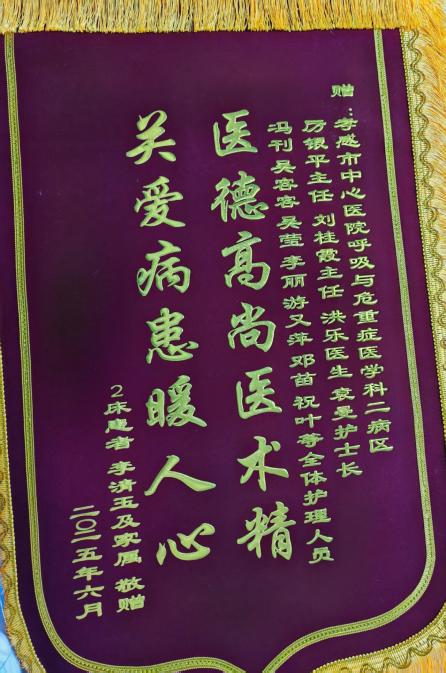 赠：孝感市中心医院呼吸与危重症医学科二病区
厉银平主任 刘桂霞主任 洪乐医生 袁曼护士长
冯刊 吴容容 吴莹 李丽 游又萍 邓苗 祝叶等全体护理人员
医德高尚医术精
关爱病患暖人心
2床患者 李清玉及家属 敬赠
二〇二五年六月